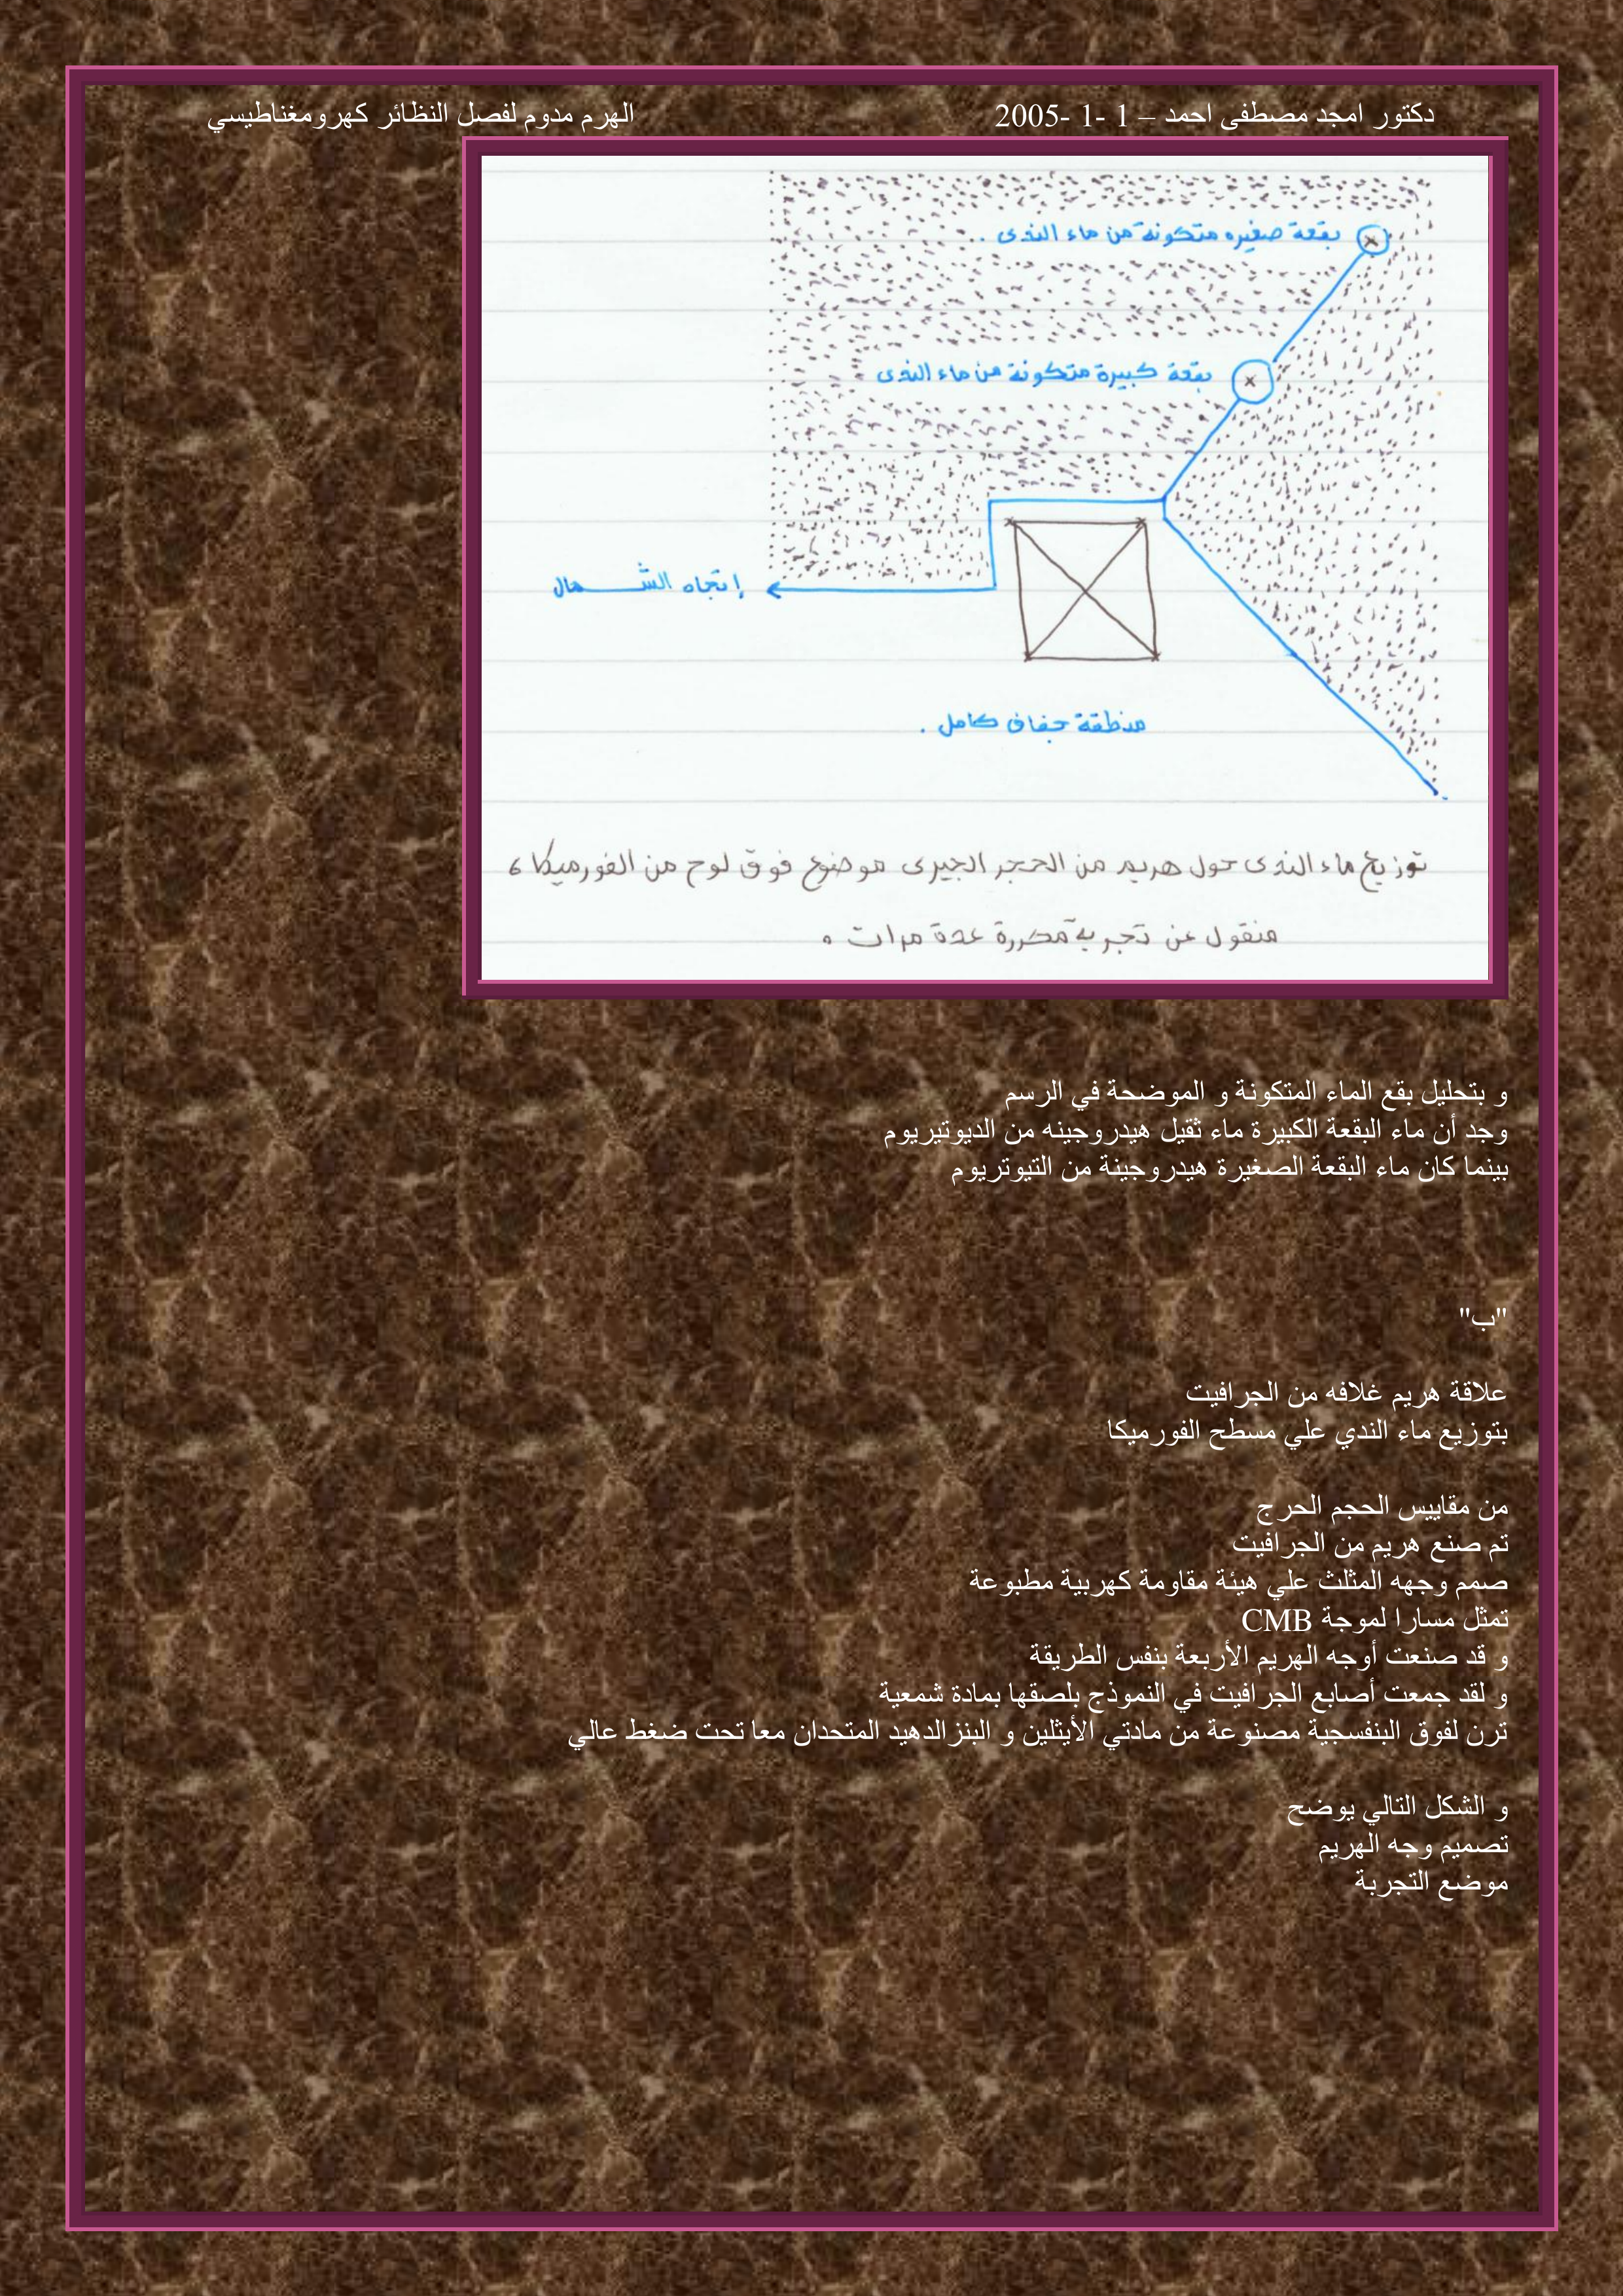 دكتور امجد مصطفى احمد – 1 -1 -2005 الهرم مدوم لفصل النظائر كهرومغناطيسي
بقعة صغيره متكونة من ماء الندى .
بقعة كبيرة متكونة من ماء الندى
إتجاه الشمال
منطقة جفاف كامل .
توزيع ماء الندى حول هريم من الحجر الجيرى موضوع فوق لوح من الفورميكا ،
منقول عن تجربة مكررة عدة مرات .
و بتحليل بقع الماء المتكونة و الموضحة في الرسم
وجد أن ماء البقعة الكبيرة ماء ثقيل هيدروجينه من الديوتيريوم
بينما كان ماء البقعة الصغيرة هيدروجينة من التيوتريوم
"ب"
علاقة هريم غلافه من الجرافيت
بتوزيع ماء الندي علي مسطح الفورميكا
من مقاييس الحجم الحرج
تم صنع هريم من الجرافيت
صمم وجهه المثلث علي هيئة مقاومة كهربية مطبوعة
تمثل مسارا لموجة CMB
و قد صنعت أوجه الهريم الأربعة بنفس الطريقة
و لقد جمعت أصابع الجرافيت في النموذج بلصقها بمادة شمعية
ترن لفوق البنفسجية مصنوعة من مادتي الأيثلين و البنزالدهيد المتحدان معا تحت ضغط عالي
و الشكل التالي يوضح
تصميم وجه الهريم
موضع التجربة